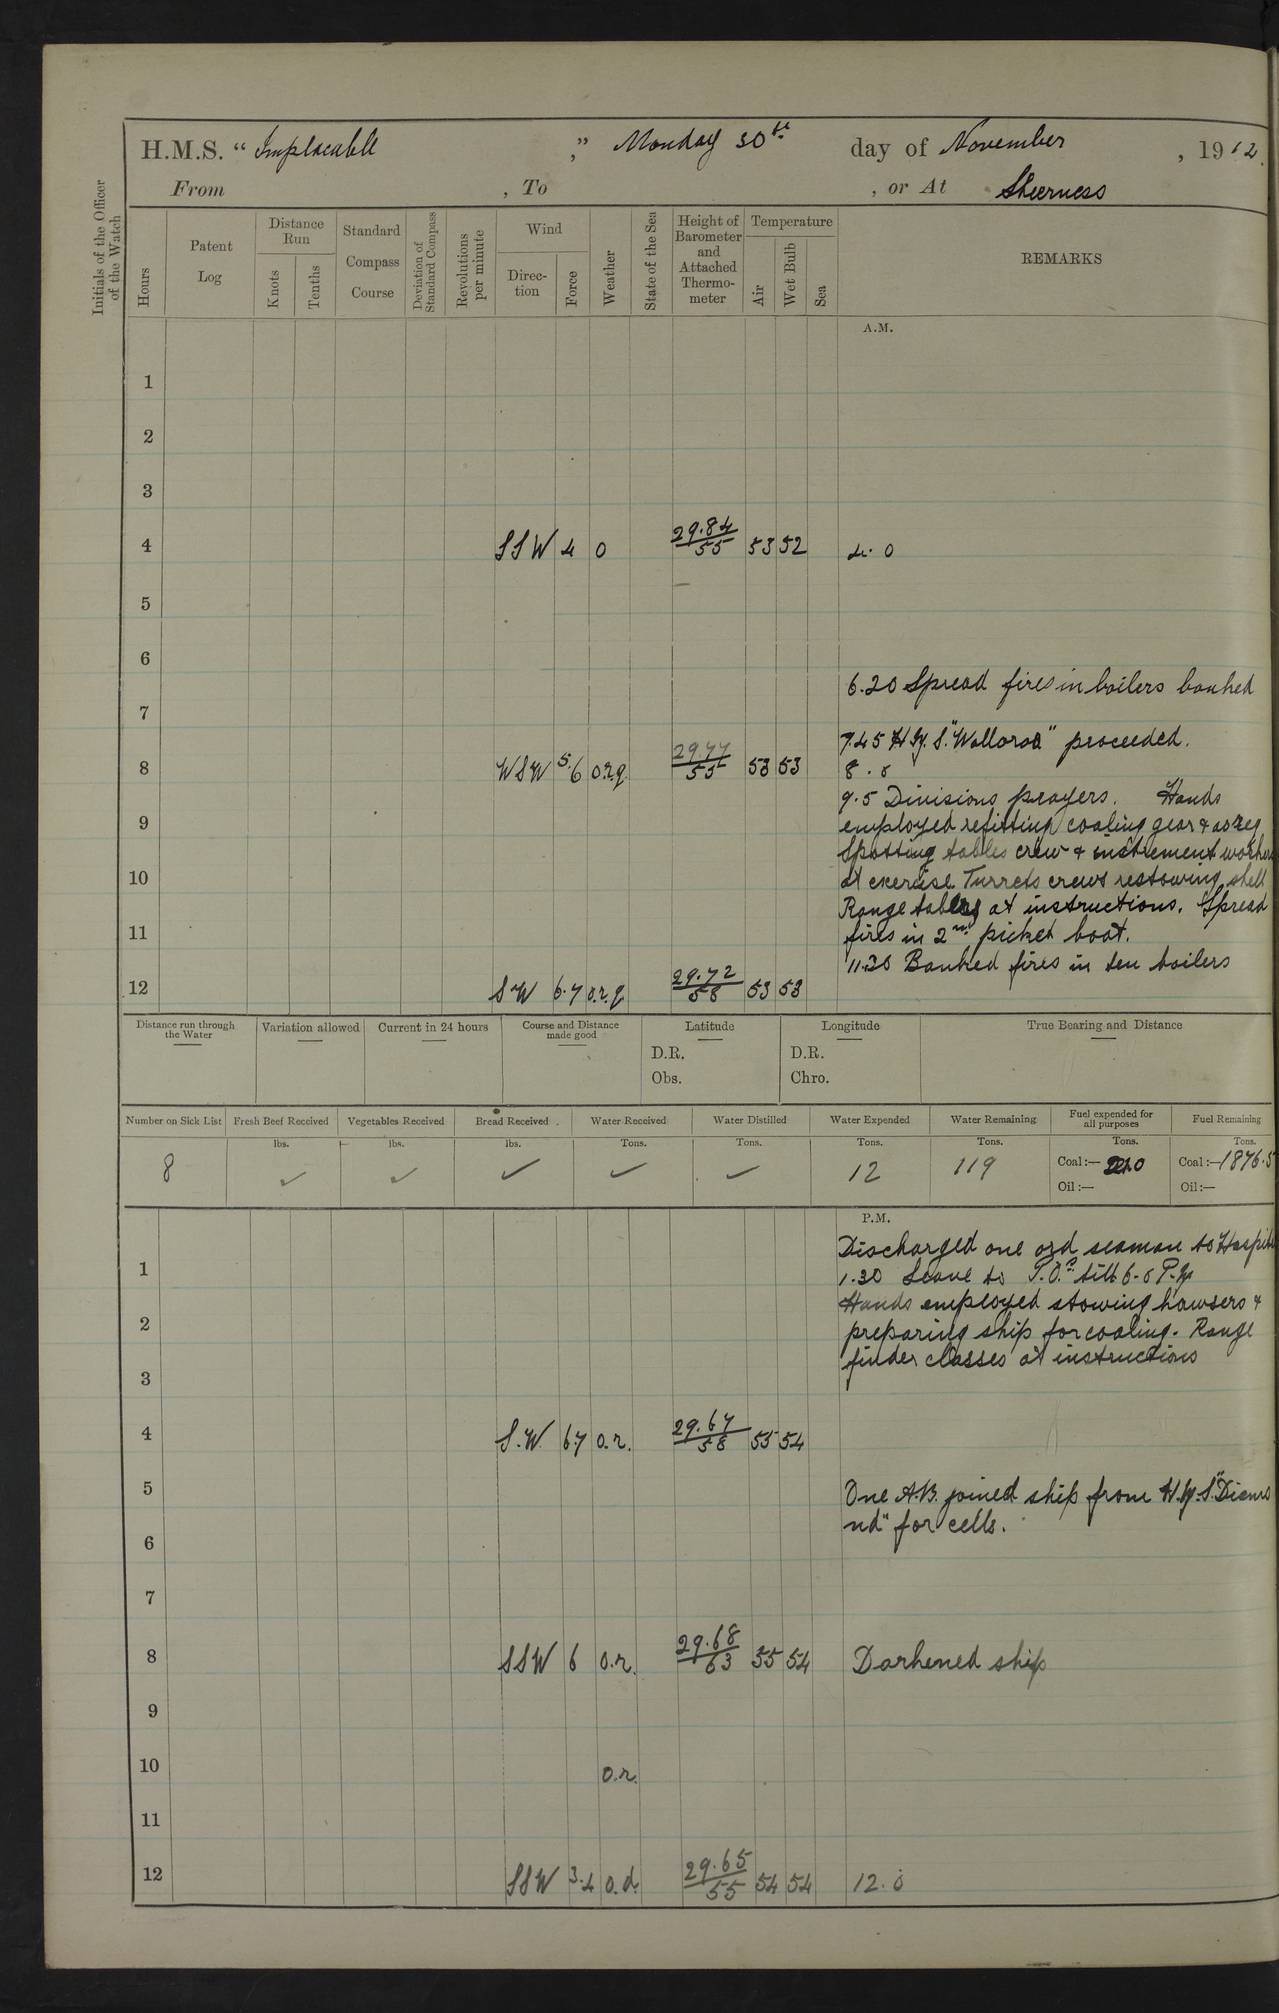 H.M.S. "Implacable ," Monday 30th day of November , 1912.
From , To , or At Sheerness
Initials of the Officer of the Watch
Hours
Patent Log
Distance Run
Knots
Tenths
Standard Compass Course
Deviation of Standard Compass
Revolutions per minute
Wind
Direc-tion
Force
Weather
State of the Sea
Height of Barometer and Attached Thermo-meter
Temperature
Air
Wet Bulb
Sea
REMARKS
A.M.
1
2
3
4 SSW 4 o 29.84/55 53 52 4.0
5
6
6.20 Spread fires in boilers banked
7
7.45 H.M.S. "Wallaroo" proceeded.
8 WSW 5.6 o.r.q. 29.77/55 53 53 8.0
9.5 Divisions prayers. Hands
9 employed refitting coaling gear & as req
Spotting tables crew & instrement workers
10 at exercise Turrets crews restowing shell
Range tables at instructions. Spread
11 fires in 2nd picket boat.
11.30 Banked fires in ten boilers
12 SW 6.7 o.r.q. 29.72/58 53 53
Distance run through the Water
Variation allowed
Current in 24 hours
Course and Distance made good
Latitude
D.R.
Obs.
Longitude
D.R.
Chro.
True Bearing and Distance
Number on Sick List
Fresh Beef Received
Vegetables Received
Bread Received
Water Received
Water Distilled
Water Expended
Water Remaining
Fuel expended for all purposes
Fuel Remaining
lbs. lbs. lbs. Tons. Tons. Tons. Tons. Tons. Tons.
8 ✓ ✓ ✓ ✓ ✓ 12 119 Coal:— Coal:—1876.5
Oil:— Oil:—
P.M.
Discharged one ord seaman to Hospital
1 1.30 Leave to P.O.s till 6.0 P.M
Hands employed stowing hawsers &
2 preparing ship for coaling. Range
finder classes at instructions
3
4 S.W. 6.7 o.r. 29.67/58 55 54
5 One A.B. joined ship from H.M.S. "Diamo
nd" for cells.
6
7
8 SSW 6 o.r. 29.68/63 55 54 Darkened ship
9
10 o.r.
11
12 SSW 3.4 o.d. 29.65/55 54 54 12.0